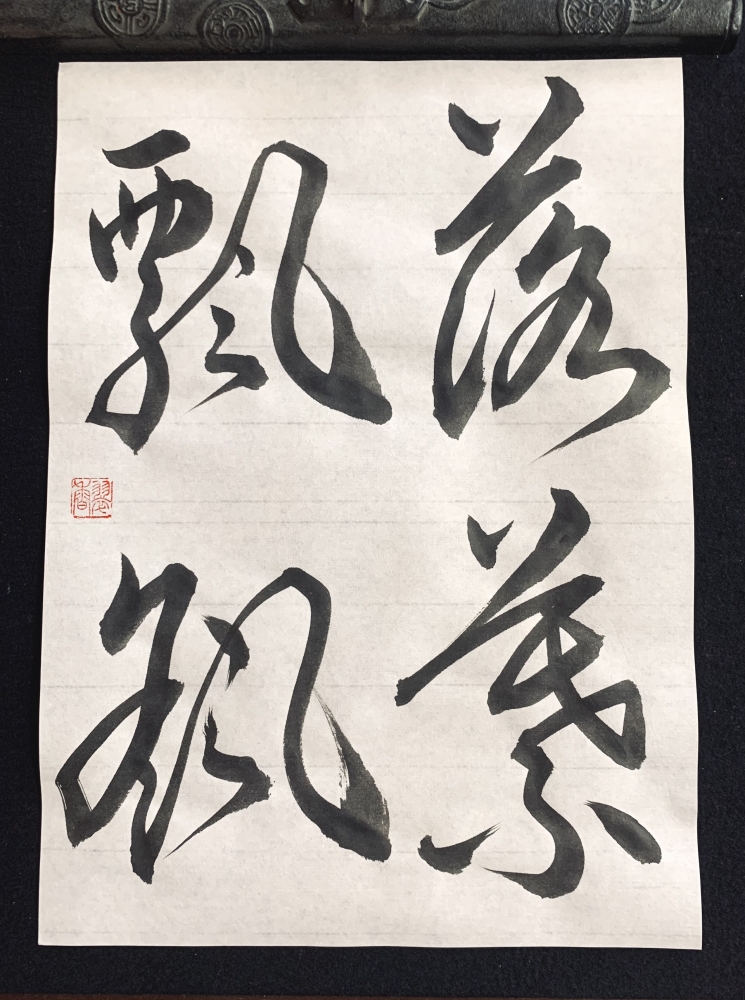 落葉
飄颻